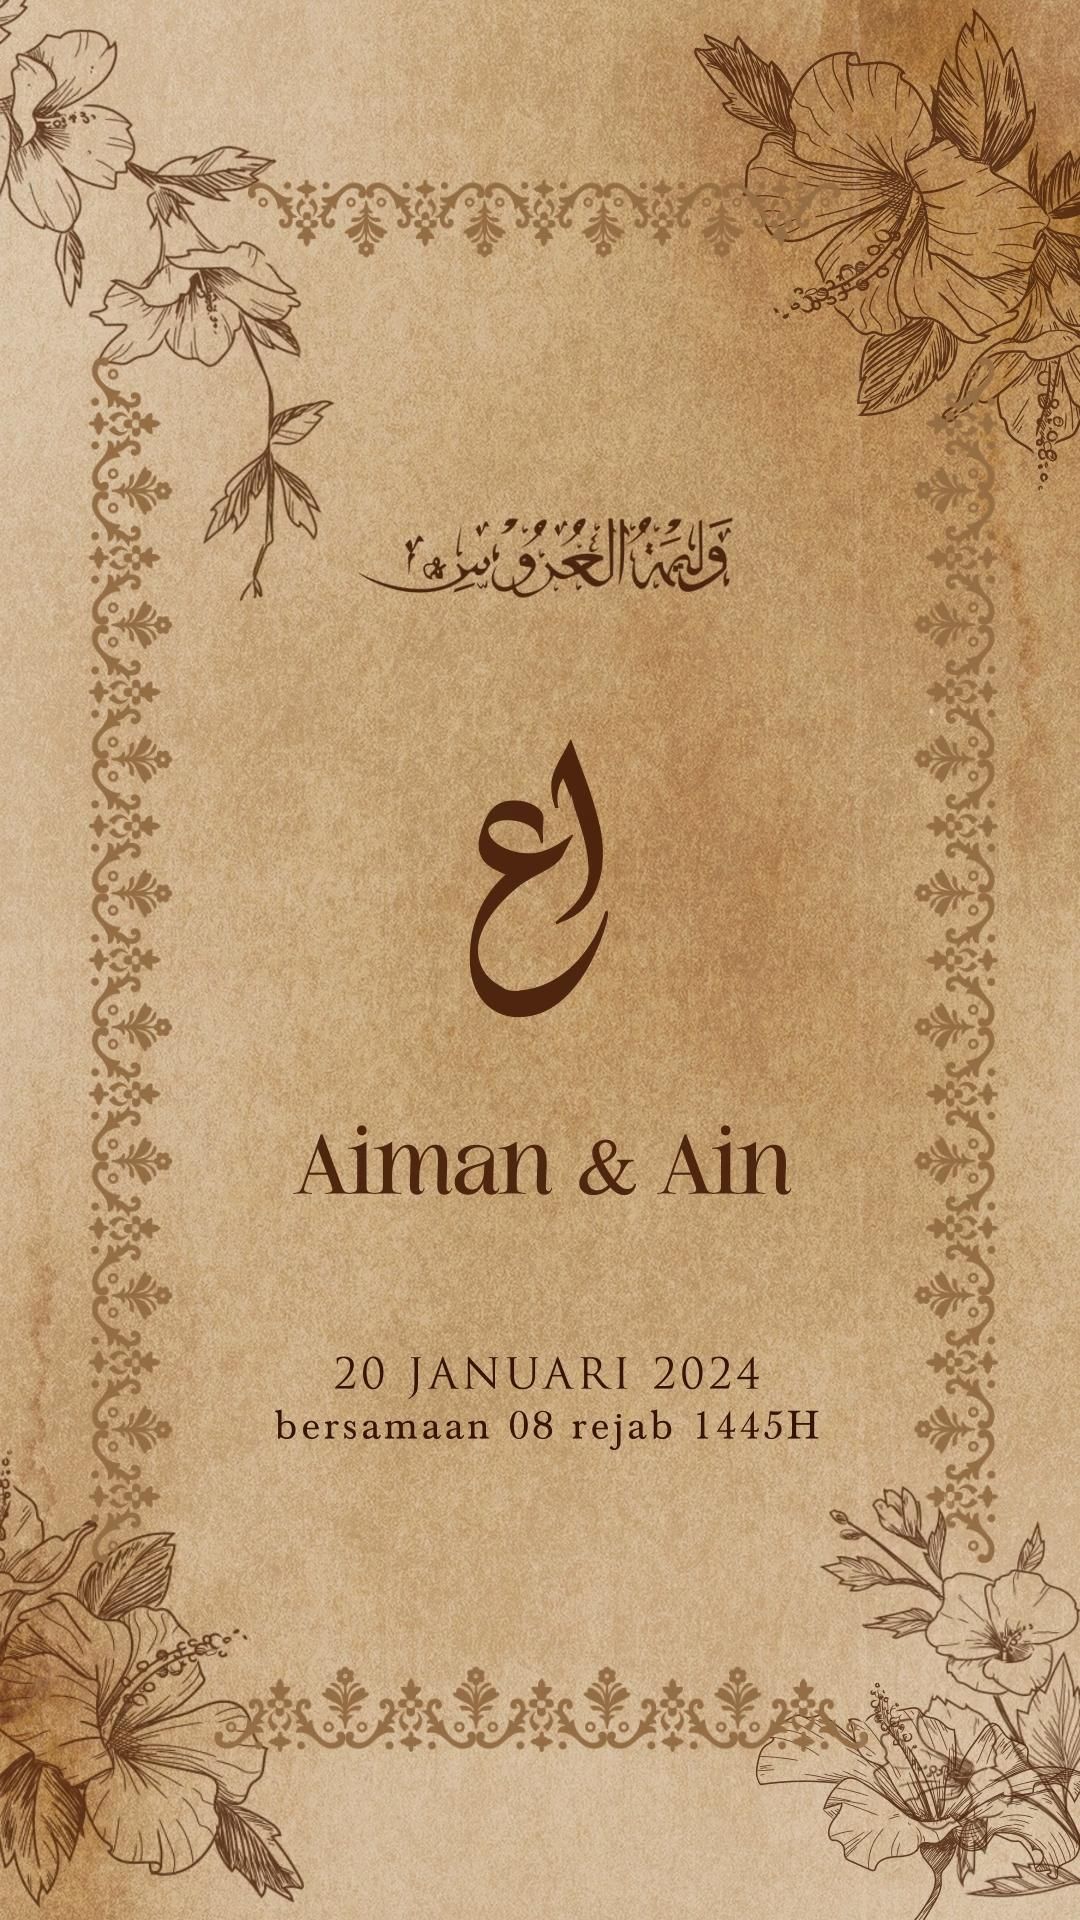 وَلِيمَةُ الْعُرُوْسِ
اع
Aiman & Ain
20 JANUARI 2024
bersamaan 08 rejab 1445H